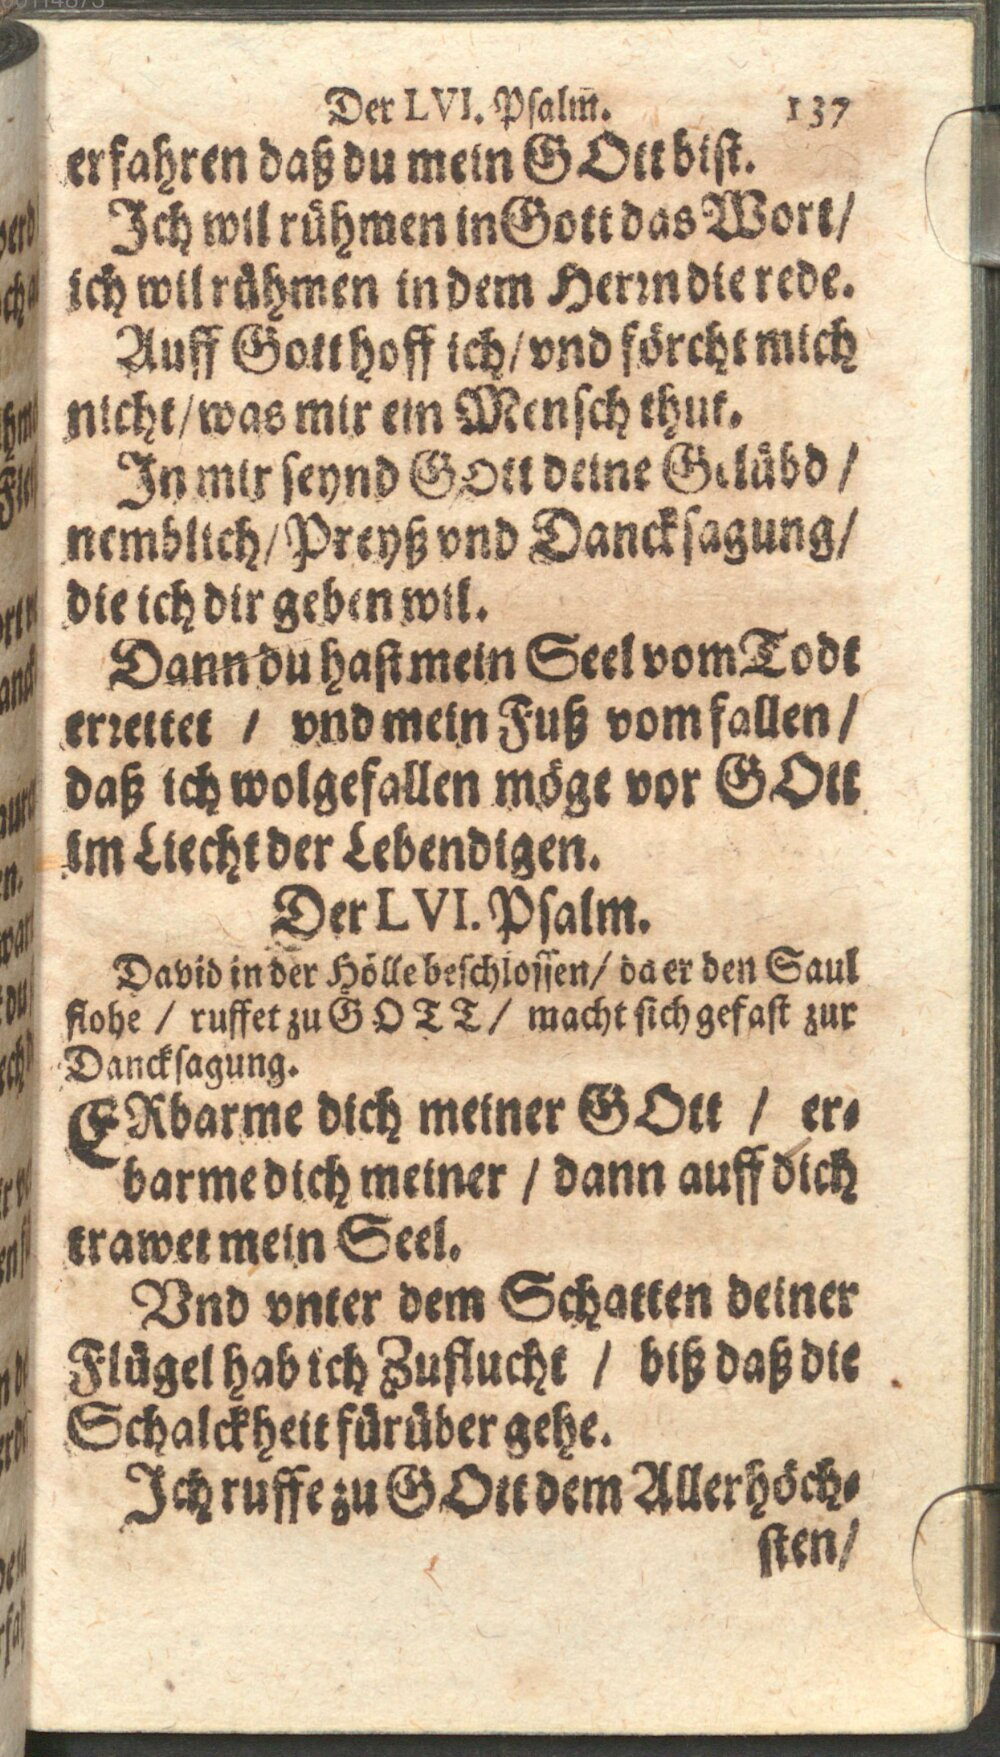 Der LVI. Psalm̄. 137
erfahren daß du mein GOtt bist.
Ich wil rühmen in Gott das Wort/
ich wil rühmen in dem Herrn die rede.
Auff Gott hoff ich/ vnd förcht mich
nicht/ was mir ein Mensch thut.
In mir seynd GOtt deine Gelübd /
nemblich/ Preyß vnd Dancksagung/
die ich dir geben wil.
Dann du hast mein Seel vom Todt
errettet / vnd mein Fuß vom fallen/
daß ich wolgefallen möge vor GOtt
im Liecht der Lebendigen.
Der LVI. Psalm.
David in der Hölle beschlossen/ da er den Saul
flohe / ruffet zu GOTT/ macht sich gefast zur
Dancksagung.
ERbarme dich meiner GOtt / er-
barme dich meiner / dann auff dich
trawet mein Seel.
Vnd vnter dem Schatten deiner
Flügel hab ich Zuflucht / biß daß die
Schalckheit fürüber gehe.
Ich ruffe zu GOtt dem Allerhöch-
sten/